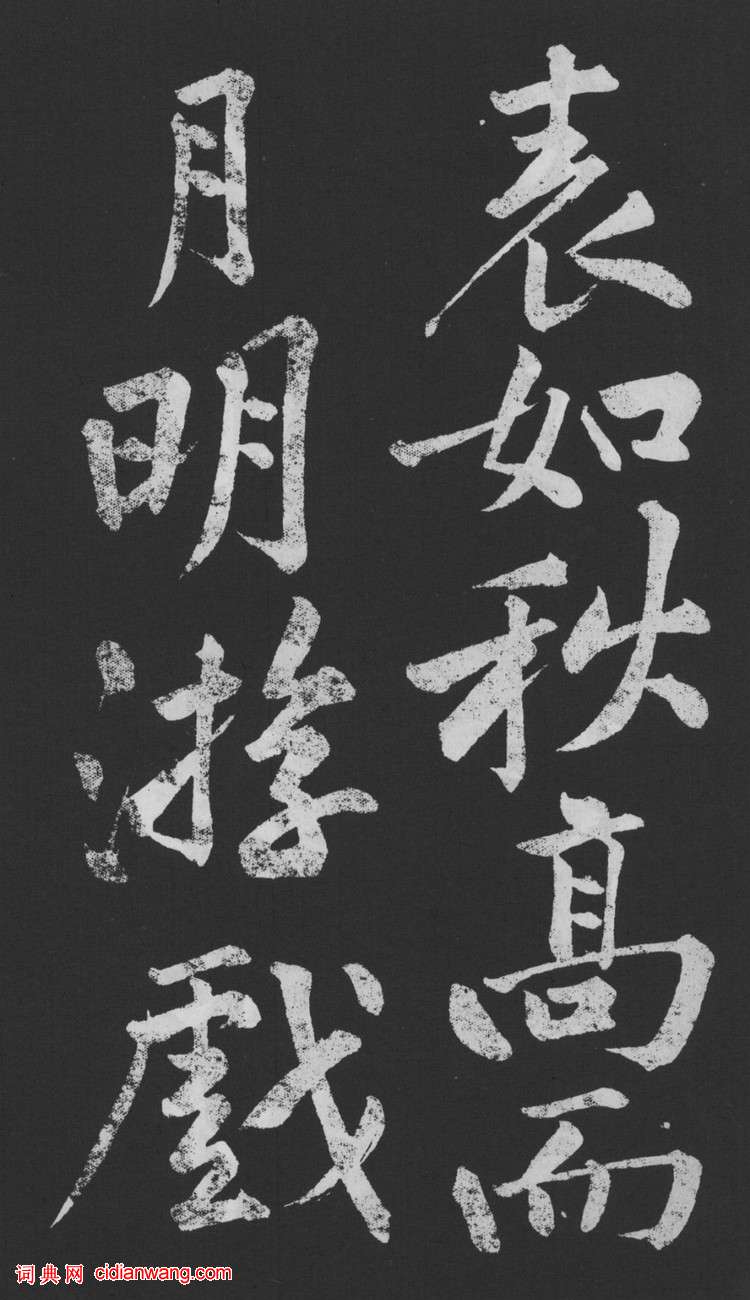 表如秋高而
月明游戲
词典网 cidianwang.com